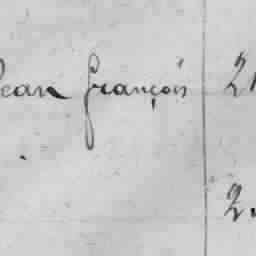 Jean François 2
2